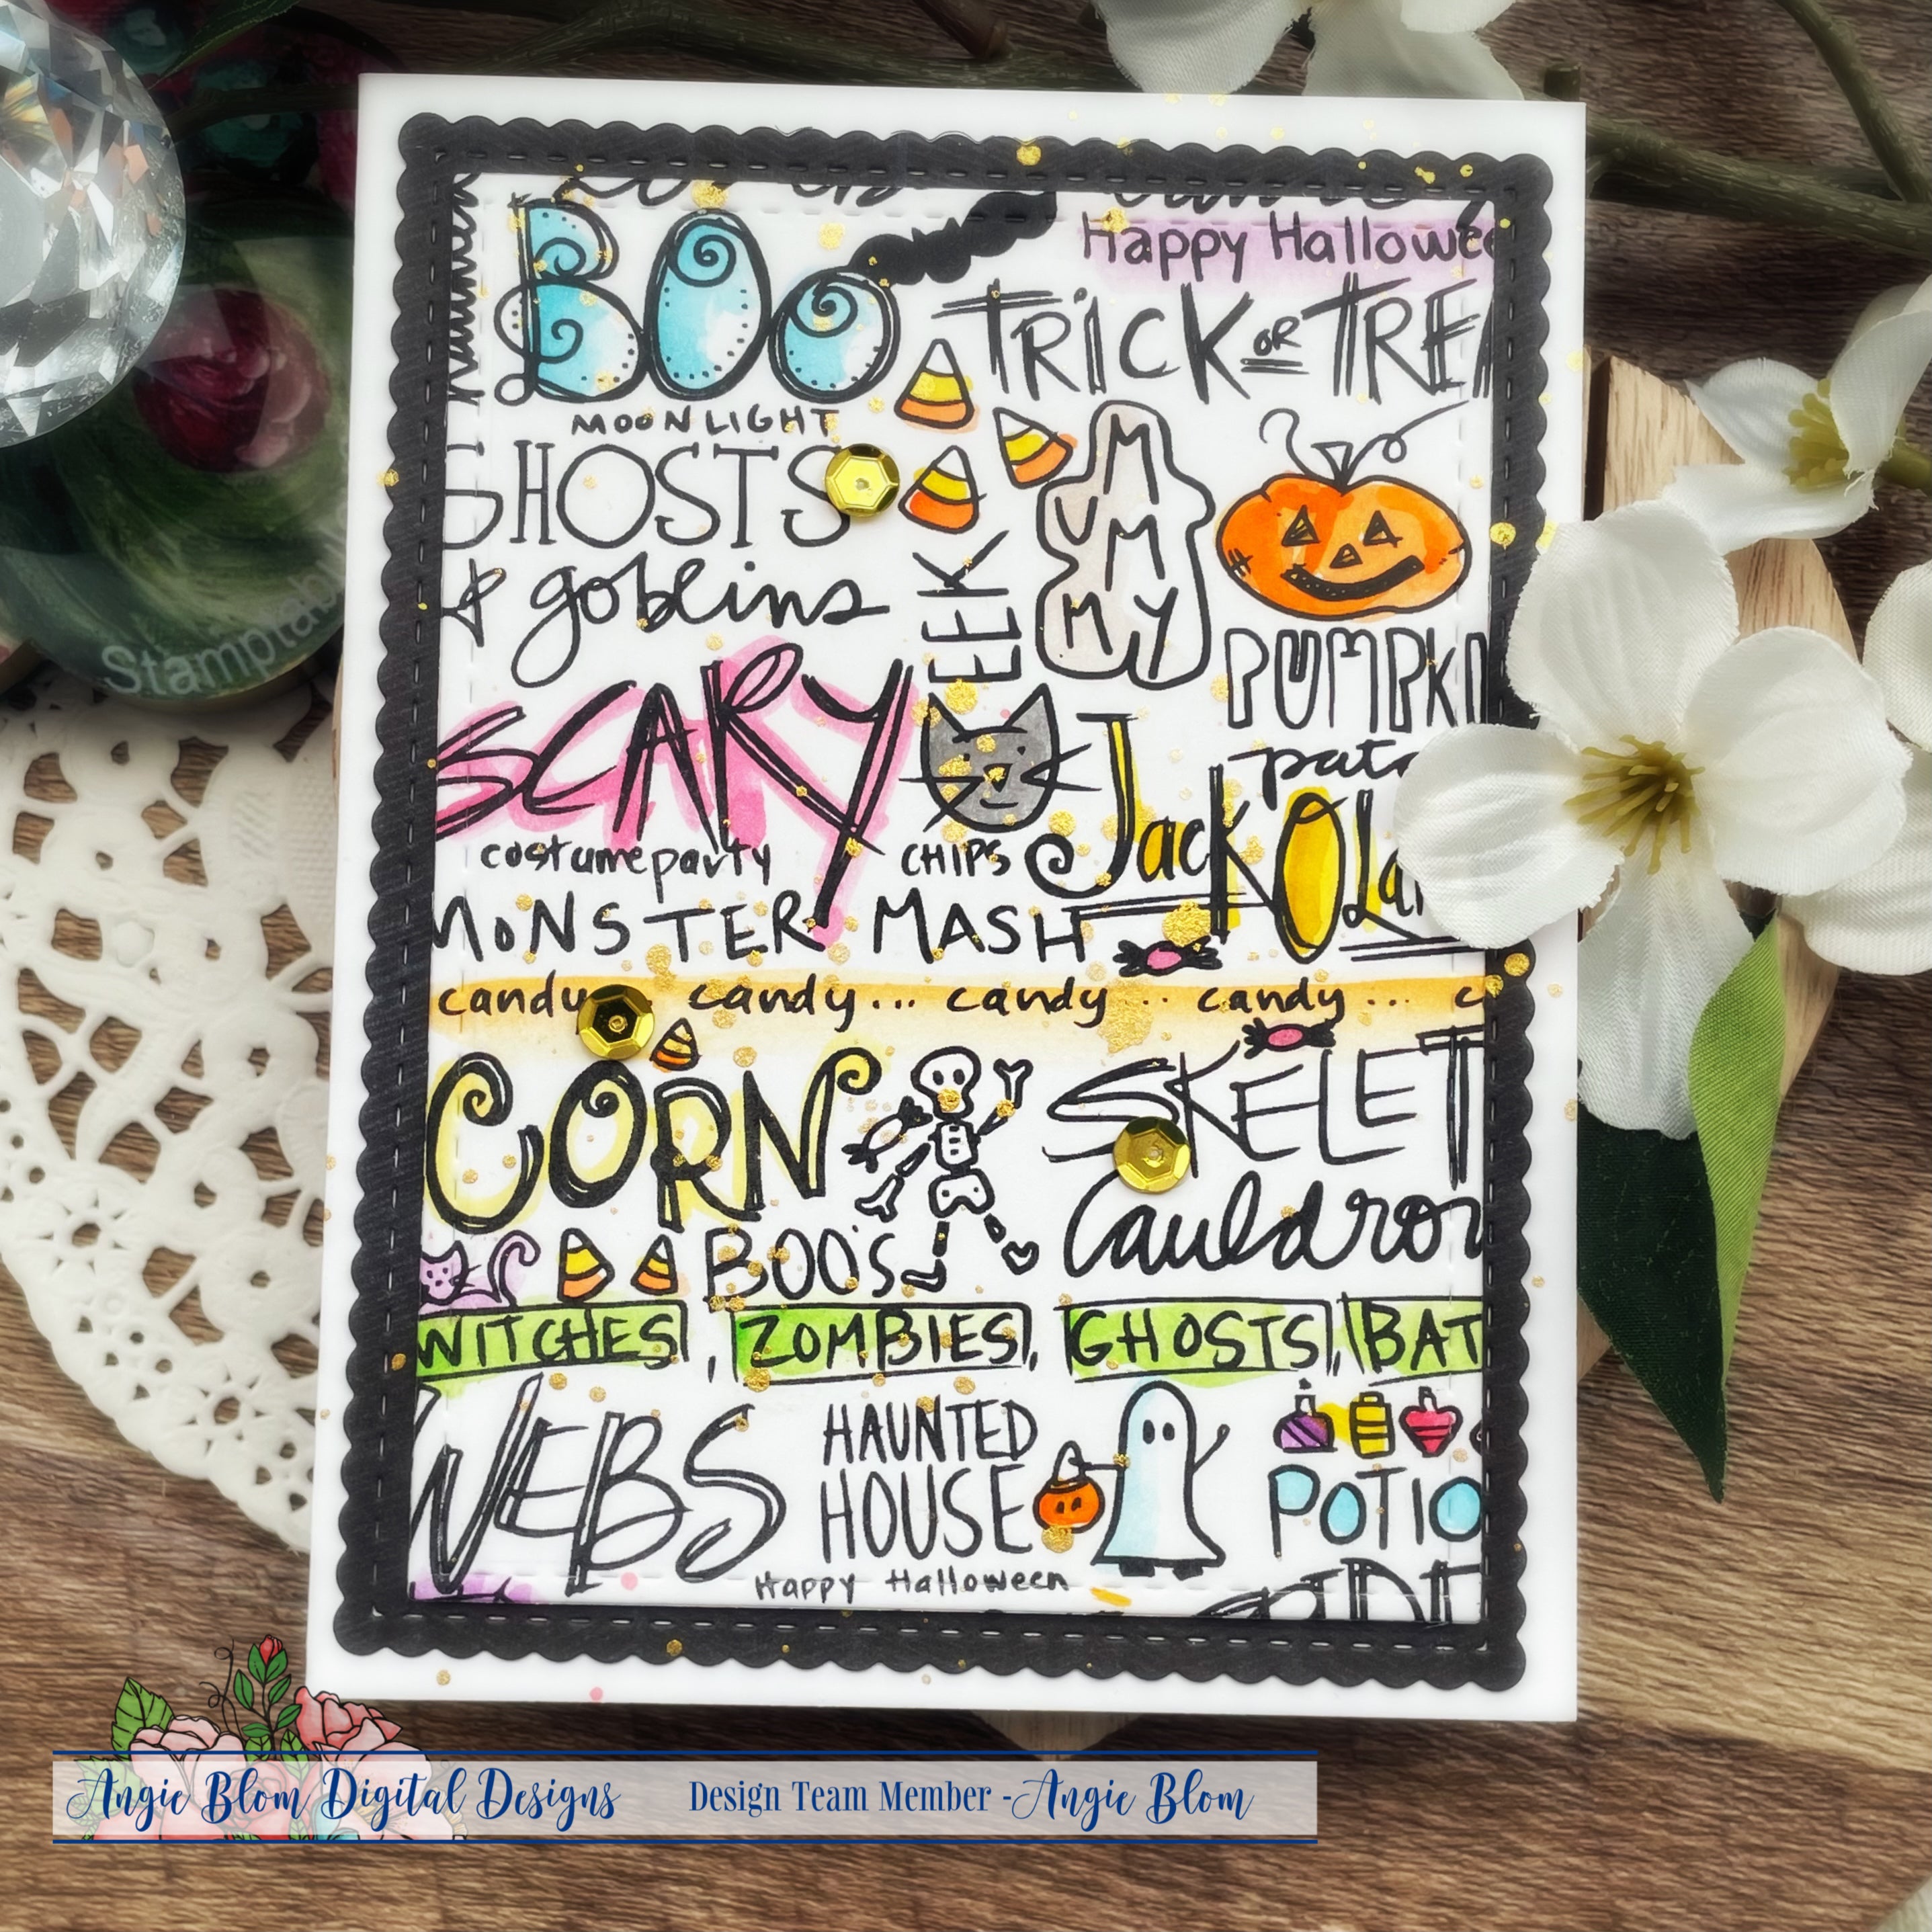 Happy Hallowee
BOO
TRiCK OR TREA
MOONLIGHT
GHOSTS
& goblins
EEK
MUMMY
PUMPKIN
patc
SCARY
Jack O La
costume party
CHIPS
MONSTER MASH
candy candy... candy .. candy... c
CORN
SKELET
BOO'S
Cauldron
WITCHES, ZOMBIES, GHOSTS, BAT
WEBS
HAUNTED
HOUSE
POTIO
Happy Halloween
Stampta
Angie Blom Digital Designs Design Team Member - Angie Blom